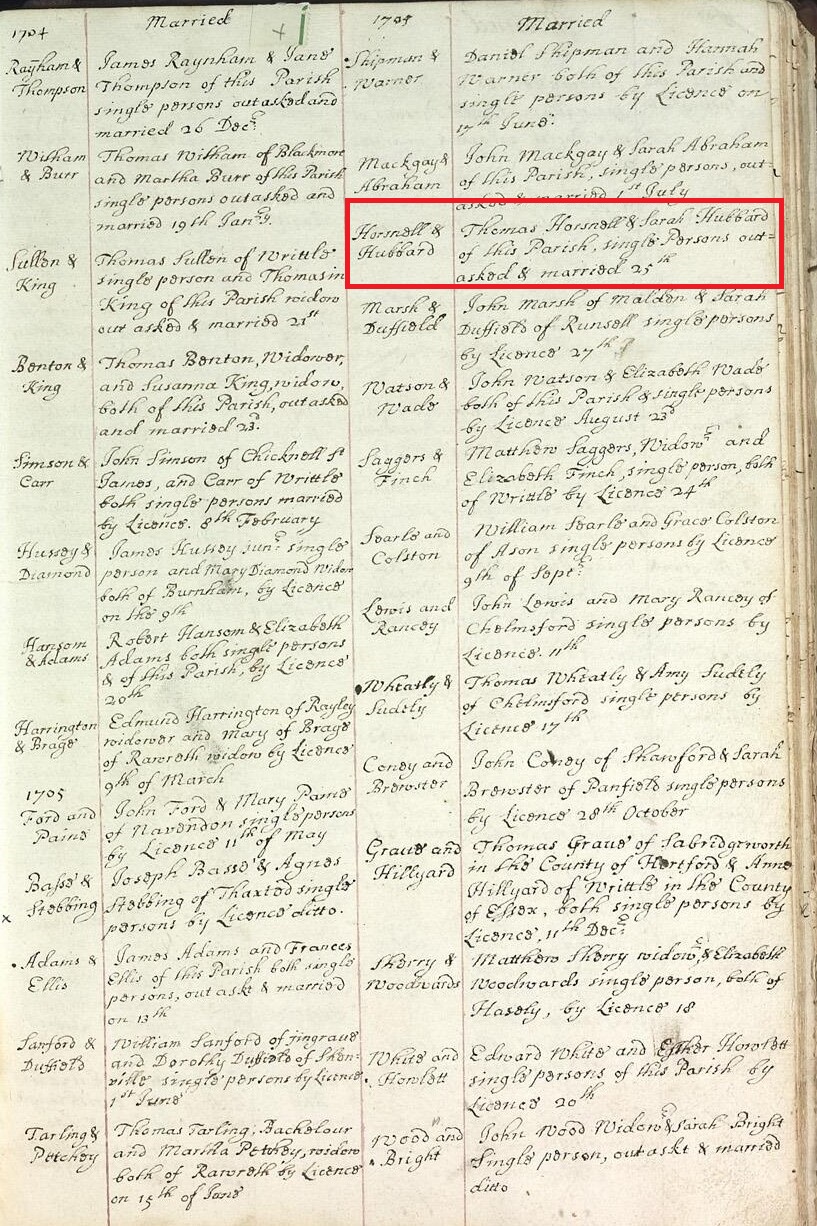 1704
Married
Rayham &
Thompson
James Raynham & Jane
Thompson of this Parish
single persons out asked and
married 26 Decr.
Witham
& Burr
Thomas Witham of Blackmore
and Martha Burr of this Parish
single persons out asked and
married 19th Janry.
Sullen &
King
Thomas Sullen of Writtle
single person and Thomasin
King of this Parish widow
out asked & married 21st
Benton &
King
Thomas Benton, Widower,
and Susanna King, widow,
both of this Parish, out asked
and married 23d.
Simson &
Carr
John Simson of Chicknell St
James, and Carr of Writtle
both single persons married
by Licence. 8th February
Hussey &
Diamond
James Hussey junr. single
person and Mary Diamond Widow
both of Burnham, by Licence
on the 9th
Hansom
& Adams
Robert Hansom & Elizabeth
Adams both single persons
& of this Parish, by Licence
20th
Harrington
& Brage
Edmund Harrington of Rayley
widower and Mary of Brage
of Rawreth widow by Licence
9th of March
1705
Ford and
Paine
John Ford & Mary Paine
of Navendon single persons
by Licence 11th of May
Basse &
Stebbing
Joseph Basse & Agnes
Stebbing of Thaxted single
persons by Licence ditto.
Adams &
Ellis
James Adams and Frances
Ellis of this Parish both single
persons, out askt & married
on 13th
Sanford &
Duffield
William Sanford of jingrave
and Dorothy Duffield of Sken-
ville single persons by Licence
1st June
Tarling &
Petchey
Thomas Tarling, Bachelour
and Martha Petchey, widow
both of Rawreth by Licence
on 15th of June
1705
Married
Shipman &
Warner
Daniel Shipman and Hannah
Warner both of this Parish and
single persons by Licence on
17th June.
Mackgay &
Abraham
John Mackgay & Sarah Abraham
of this Parish, single persons, out-
asked & married 1st July
Horsnell &
Hubbard
Thomas Horsnell & Sarah Hubbard
of this Parish, single Persons out=
asked & married 25th
Marsh &
Duffield
John Marsh of Malden & Sarah
Duffield of Runsell single persons
by Licence 27th
Watson &
Wade
John Watson & Elizabeth Wade
both of this Parish & single persons
by Licence August 23d
Saggers &
Finch
Matthew Saggers, Widowr and
Elizabeth Finch, single person, both
of Writtle by Licence 24th
Searle and
Colston
William Searle and Grace Colston
of Ason single persons by Licence
9th of Septr.
Lewis and
Rancey
John Lewis and Mary Rancey of
Chelmsford single persons by
Licence. 11th
Wheatly &
Sudely
Thomas Wheatly & Amy Sudely
of Chelmsford single persons by
Licence 17th
Coney and
Brewster
John Coney of Shawford & Sarah
Brewster of Panfield single persons
by Licence 28th October
Graue and
Hillyard
Thomas Graue of Sabridgeworth
in the County of Hertford & Anne
Hillyard of Writtle in the County
of Essex, both single persons by
Licence, 11th Decr.
Sherry &
Woodwards
Matthew Sherry widowr, & Elizabeth
Woodwards single person, both of
Hasely, by Licence 18
White and
Howlett
Edward White and Esther Howlett
single persons of this Parish by
Licence 20th
Wood and
Bright
John Wood Widowr & Sarah Bright
Single person, out askt & married
ditto